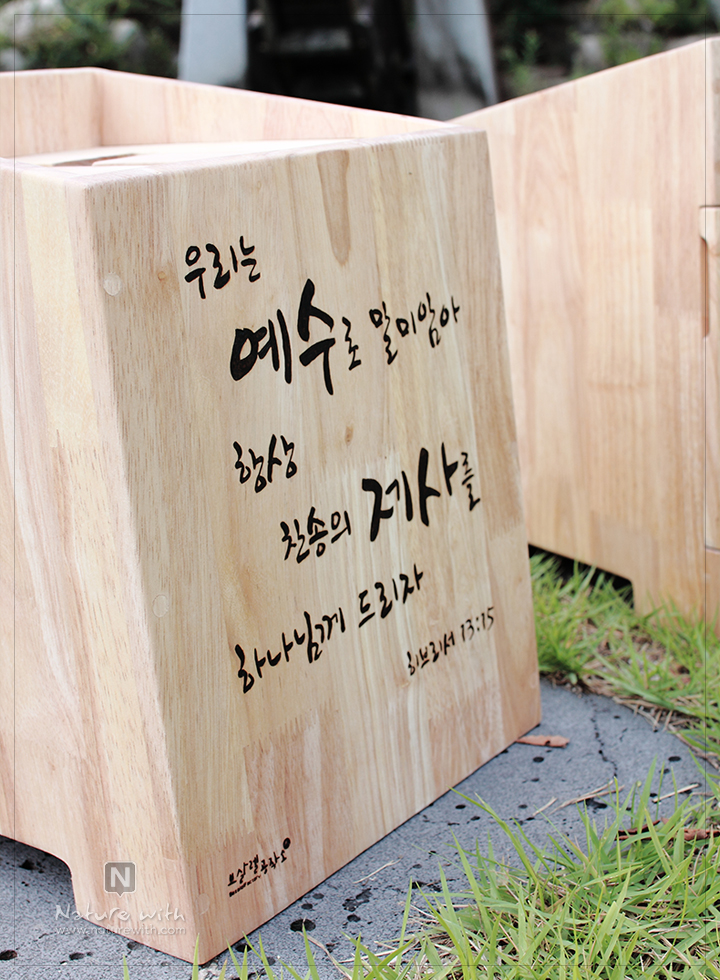 우리는
예수로 말미암아
항상
찬송의 제사를
하나님께 드리자
히브리서 13:15
브살렐공작소
N
Nature with
www.naturewith.com